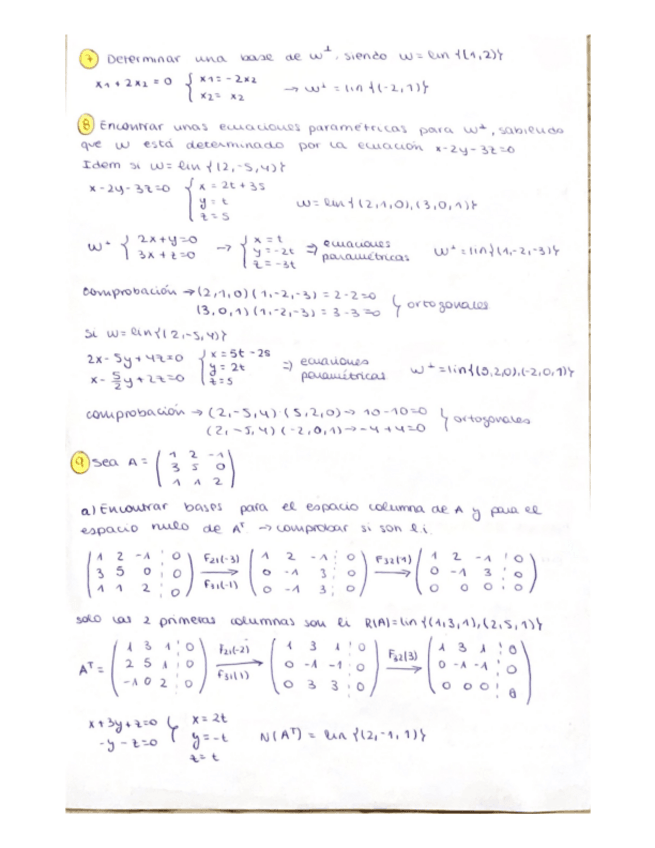 7 Determinar una base de W⊥, siendo W = lin {(1,2)}
x1 + 2x2 = 0 { x1 = -2x2 → W⊥ = lin {(-2,1)}
x2 = x2
8 Encontrar unas ecuaciones paramétricas para W⊥, sabiendo
que W está determinado por la ecuación x-2y-3z=0
Idem si W= lin {(2,-5,4)}
x-2y-3z=0 { x = 2t+3s
y = t W= lin {(2,1,0),(3,0,1)}
z = s
W⊥ { 2x+y=0 → { x = t ⇒ ecuaciones
3x+z=0 y = -2t paramétricas W⊥ = lin {(1,-2,-3)}
z = -3t
comprobación → (2,1,0)(1,-2,-3) = 2-2=0
(3,0,1)(1,-2,-3) = 3-3=0 } ortogonales
Si W= lin {(2,-5,4)}
2x-5y+4z=0 { x = 5t-2s ⇒ ecuaciones
x-5/2y+2z=0 y = 2t paramétricas W⊥ = lin {(5,2,0),(-2,0,1)}
z = s
comprobación → (2,-5,4)(5,2,0) → 10-10=0
(2,-5,4)(-2,0,1) → -4+4=0 } ortogonales
9 Sea A = ( 1 2 -1
3 5 0
1 1 2 )
a) Encontrar bases para el espacio columna de A y para el
espacio nulo de Aᵀ → comprobar si son l.i.
( 1 2 -1 ¦ 0 F21(-3) ( 1 2 -1 ¦ 0 F32(1) ( 1 2 -1 ¦ 0
3 5 0 ¦ 0 → 0 -1 3 ¦ 0 → 0 -1 3 ¦ 0
1 1 2 ¦ 0 ) F31(-1) 0 -1 3 ¦ 0 ) 0 0 0 ¦ 0 )
solo las 2 primeras columnas son li R(A) = lin {(1,3,1),(2,5,1)}
Aᵀ = ( 1 3 1 ¦ 0 F21(-2) ( 1 3 1 ¦ 0 F32(3) ( 1 3 1 ¦ 0
2 5 1 ¦ 0 → 0 -1 -1 ¦ 0 → 0 -1 -1 ¦ 0
-1 0 2 ¦ 0 ) F31(1) 0 3 3 ¦ 0 ) 0 0 0 ¦ 0 )
x+3y+z=0 { x = 2t
-y-z=0 y = -t N(Aᵀ) = lin {(2,-1,1)}
z = t